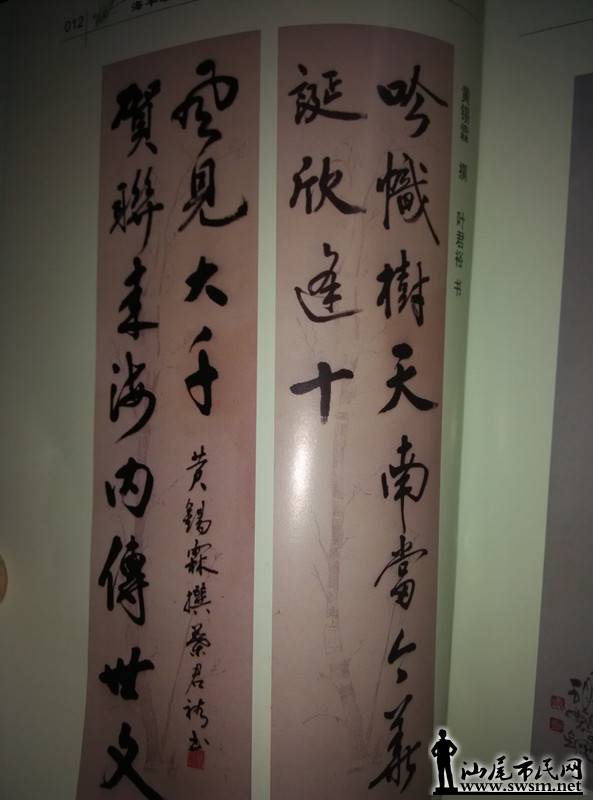 012
吟幟樹天南當今華
誕欣逢十
賀聯來海內傳世文
風見大千
黃錫霖撰葉君裕书
黄锡霖 撰 叶君裕 书
汕尾市民网
www.swsm.net